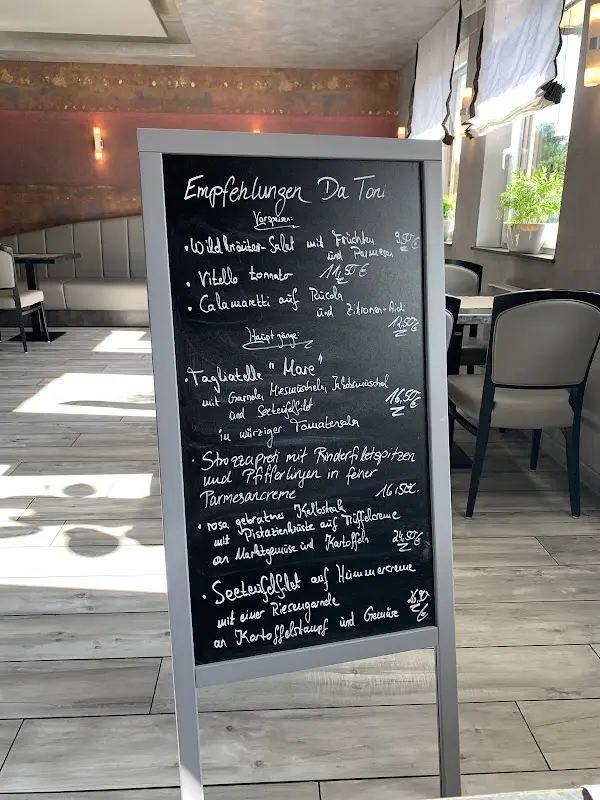 Empfehlungen Da Toni
Vorspeisen:
• Wildkräuter-Salat mit Früchten
und Parmesan 9,50€
• Vitello tonnato 11,50€
• Calamaretti auf Rucola
und Zitronen-Aioli
12,50€
Hauptgänge:
• Tagliatelle "Mare"
mit Garnele, Miesmuscheln, Jakobsmuschel
und Seeteufelfilet 16,50€
in würziger Tomatensalsa
• Strozzapreti mit Rinderfiletspitzen
und Pfifferlingen in feiner
Parmesancreme 16,50€
• rosa gebratenes Kalbsteak
mit Pistazienkruste auf Trüffelcreme
an Marktgemüse und Kartoffeln 24,50€
• Seeteufelfilet auf Hummercreme
mit einer Riesengarnele
an Kartoffelstampf und Gemüse 26,90€